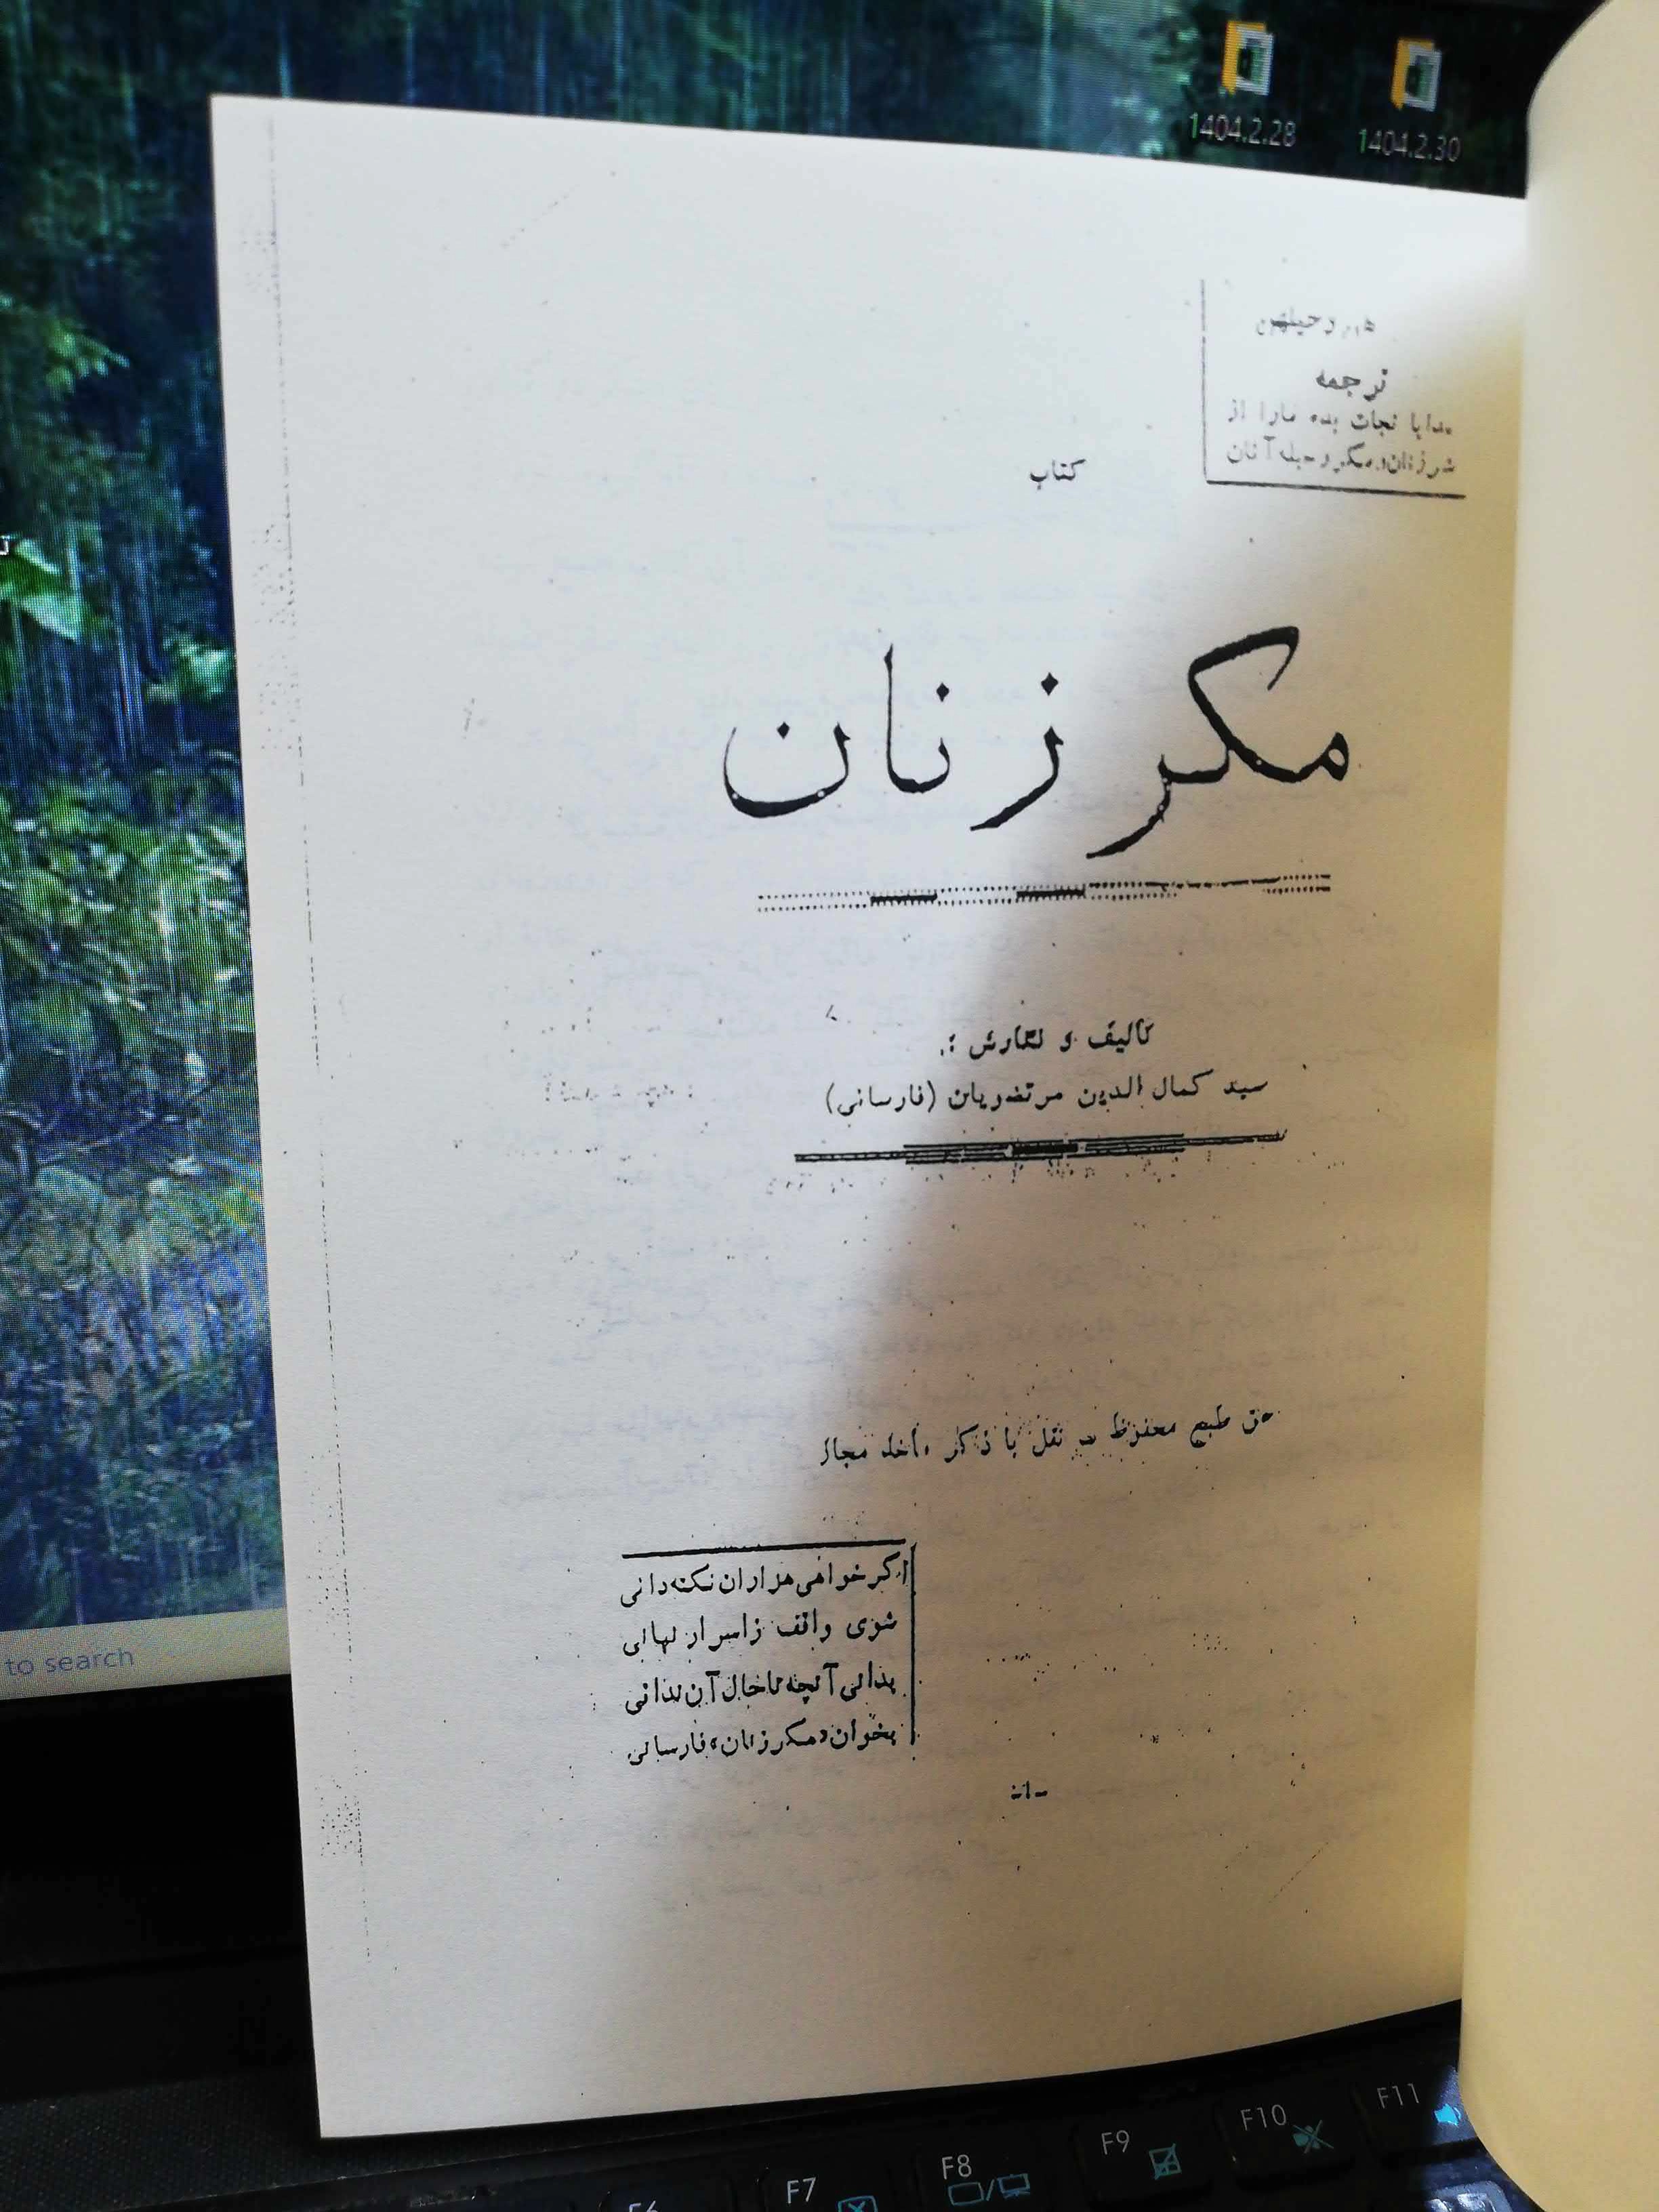 1404.2.28
1404.2.30
ترجمه
نجات بده مارا از
کتاب
مکر زنان
تالیف و نگارش :
سید کمال الدین مرتضویان (فارسانی)
طبع محفوظ نقل با ذکر مأخذ مجاز
اگر خواهی هزاران نکته دانی
شوی واقف زاسرار نهانی
بدانی آنچه تاحال آن ندانی
بخوان «مکر زنان» فارسانی
to search
F6
F7
F8
F9
F10
F11